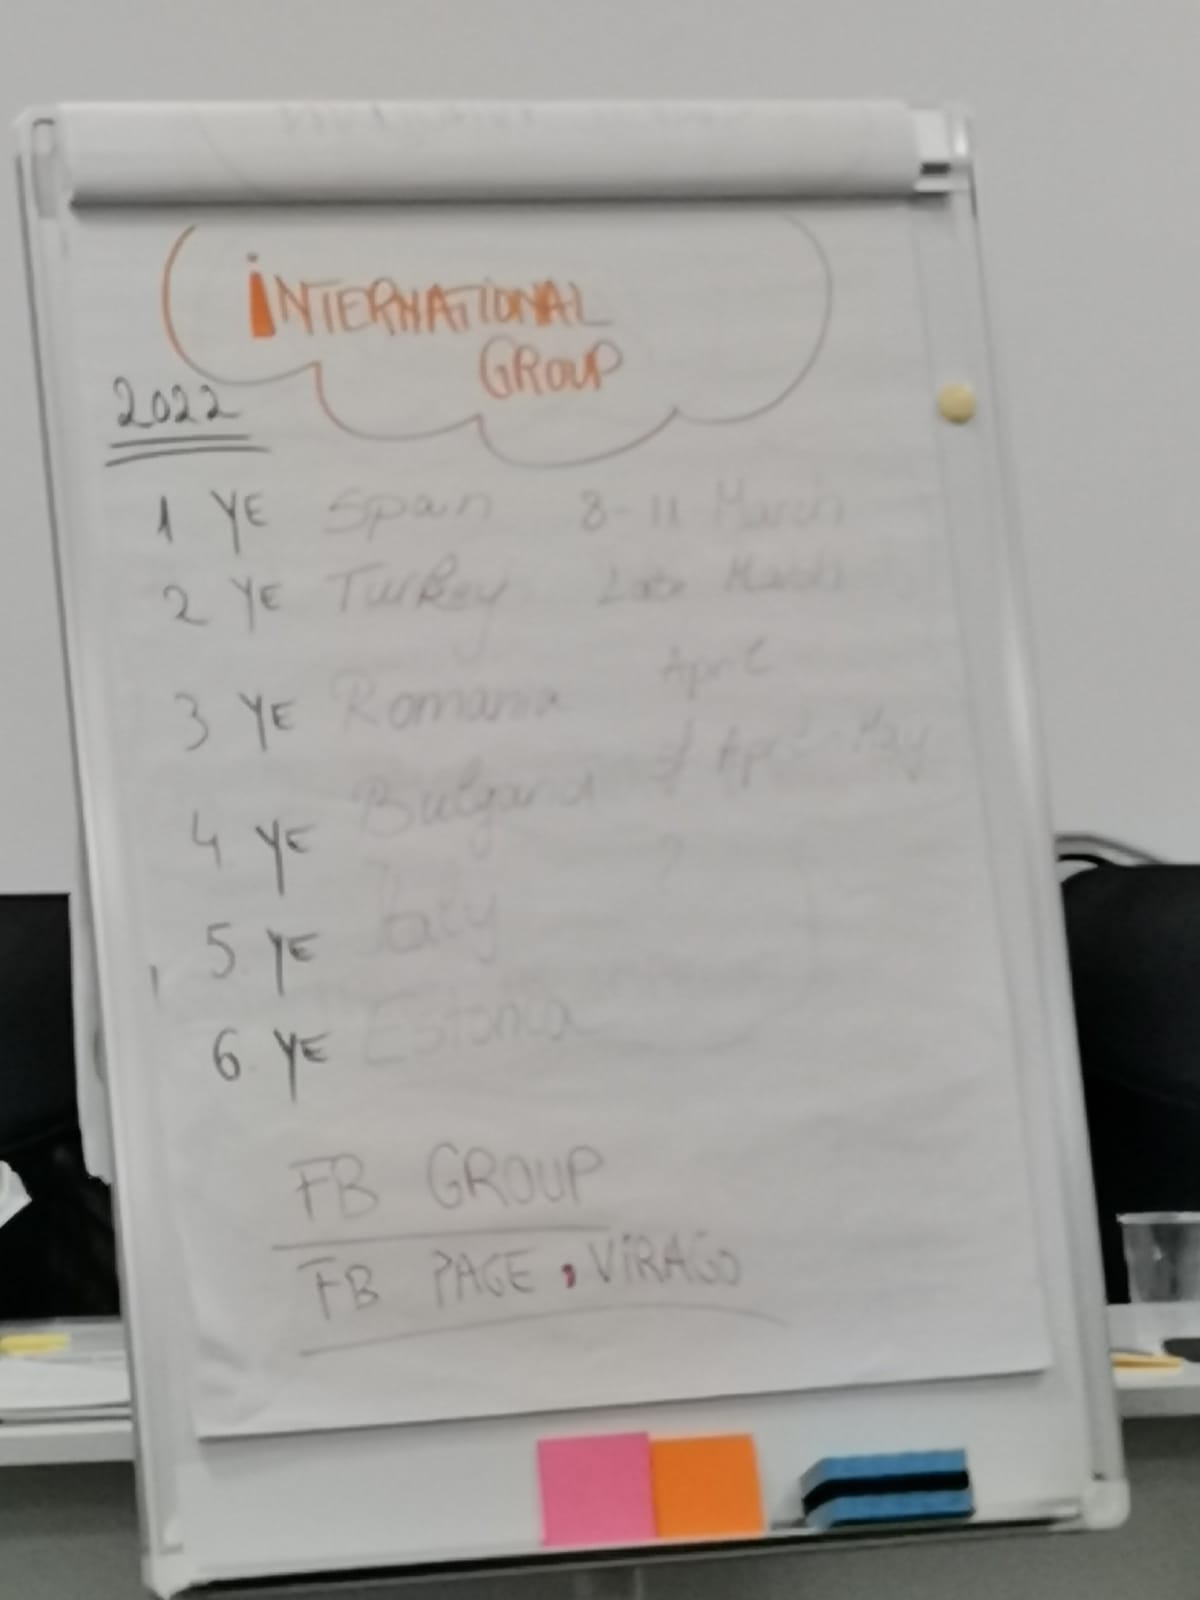 iNTERNATIONAL
GROUP
2022
1 YE Spain 8-11 March
2 YE Turkey Late March
3 YE Romania April
4 YE Bulgaria April-May
5 YE Italy ?
6 YE Estonia
FB GROUP
FB PAGE, ViRAGO